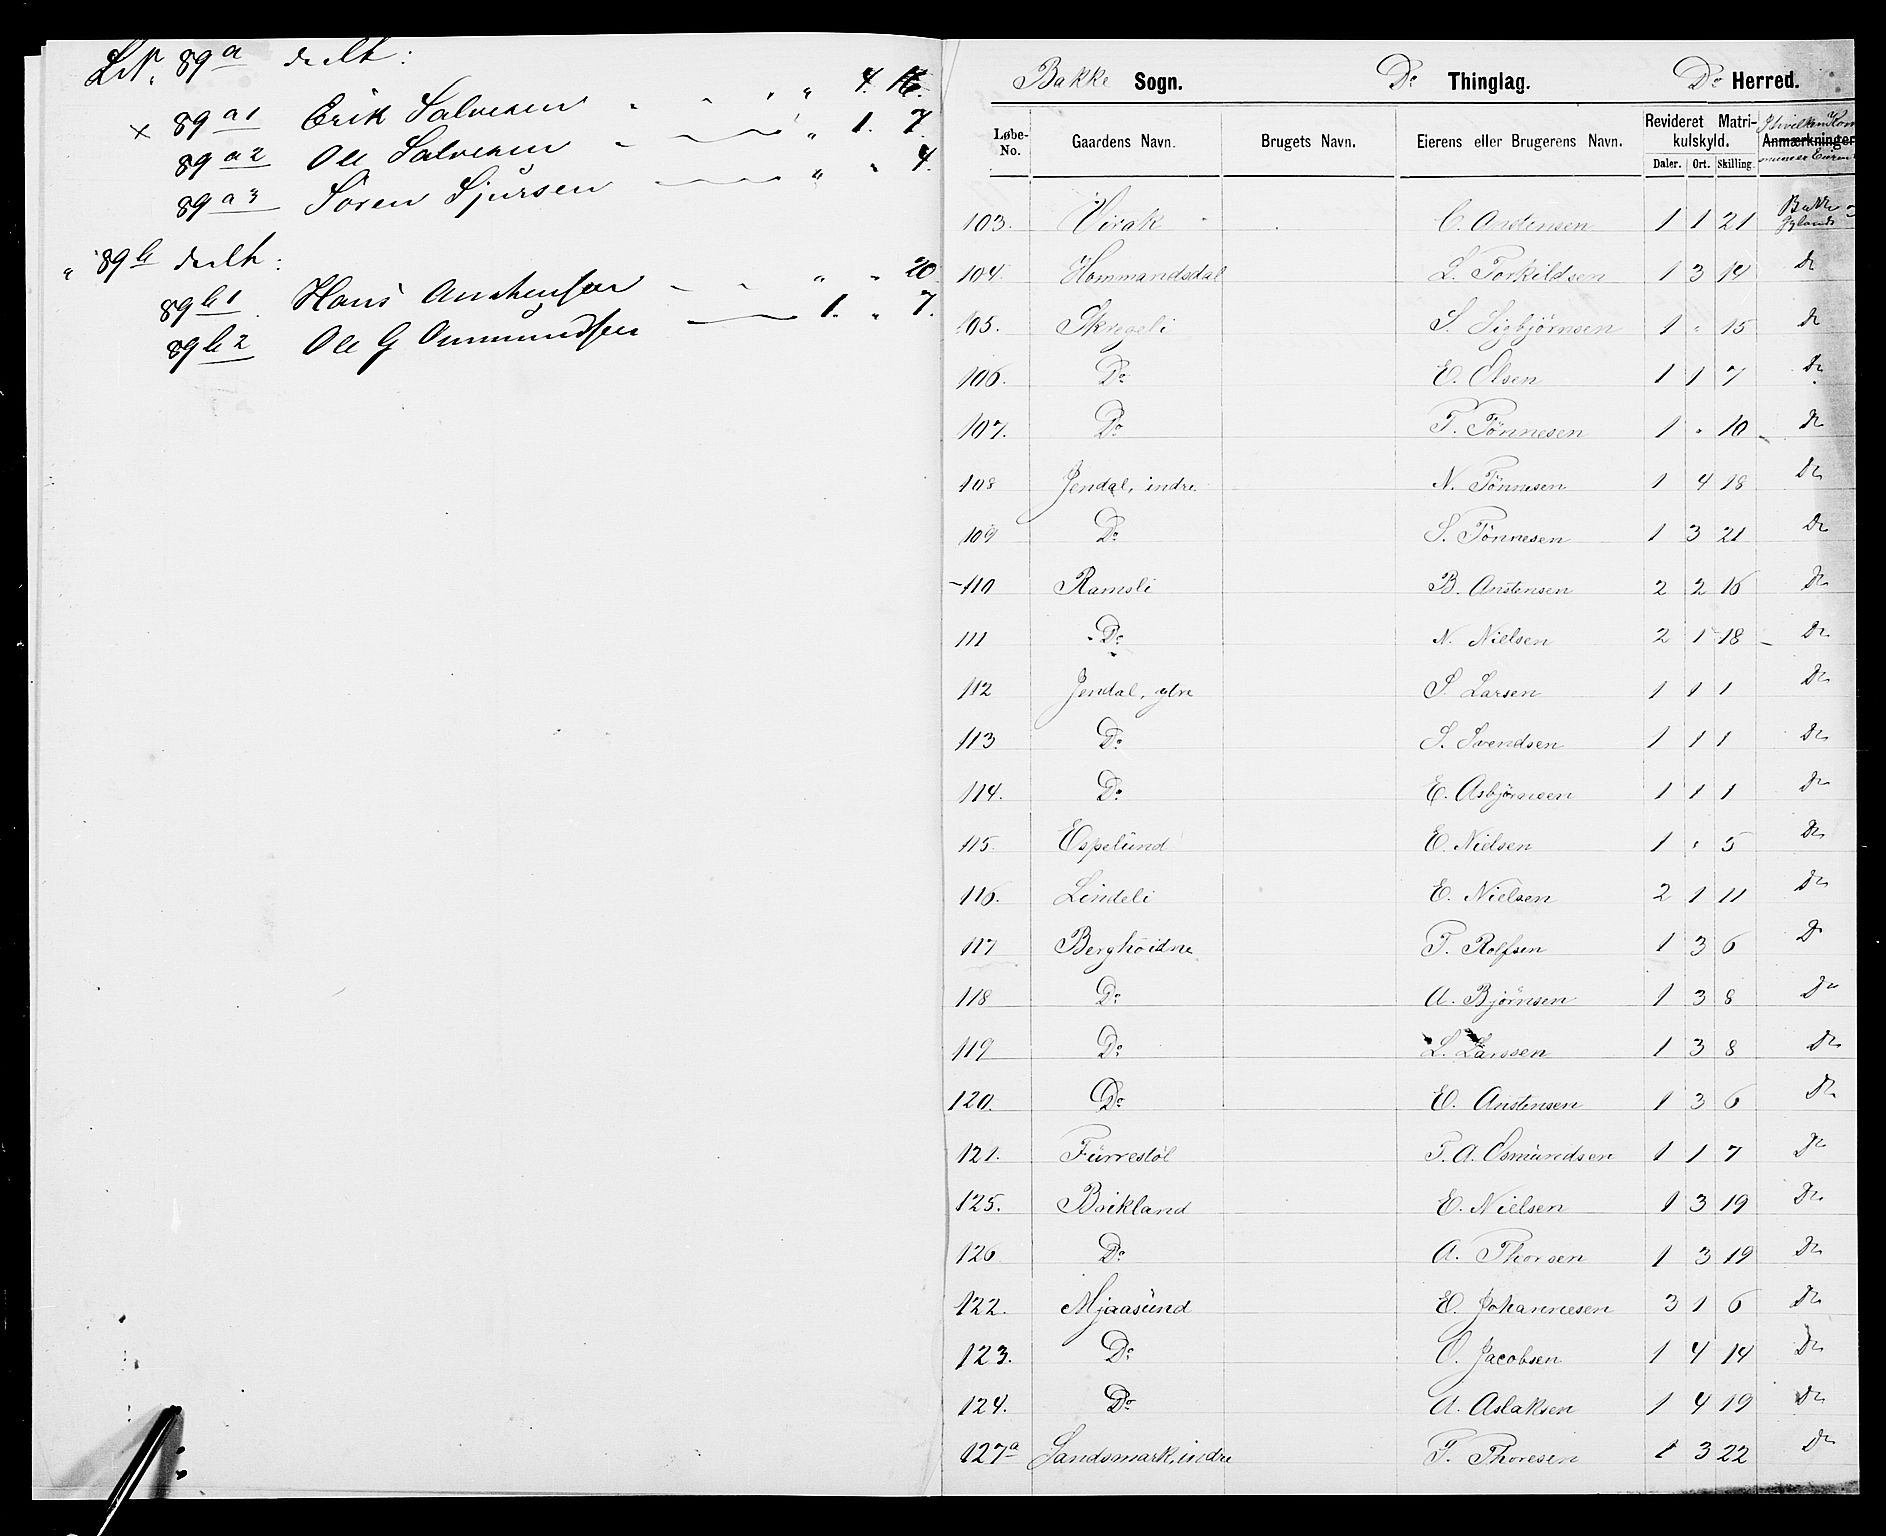 LN. 89a delt:
× 89a1 Erik Salvesen " 4. 16.
89a2 Ole Salvesen " 1. 7.
89a3 Søren Sjursen " " 4.
" 89b delt:
89b1 Hans Anstensen " " 20
89b2 Ole G Ommundsen 1. " 7.
Bakke Sogn. Do Thinglag. Do Herred.
Løbe-No. Gaardens Navn. Brugets Navn. Eierens eller Brugerens Navn. Revideret Matrikulskyld. Anmærkninger
Daler. Ort. Skilling
103. Virak C. Anstensen 1 1 21 Bakke
104. Hommandsdal L. Torkildsen 1 3 14 Do
105. Skregeli S. Sigbjørnsen 1 " 15 Do
106. Do E. Olsen 1 1 7 Do
107. Do T. Tønnesen 1 " 10 Do
108 Jendal, indre N. Tønnesen 1 4 18 Do
109 Do S. Tønnesen 1 3 21 Do
110 Ramsli B. Anstensen 2 2 16 Do
111 Do N. Nielsen 2 1 18 Do
112 Jendal, ytre S. Larsen 1 1 1 Do
113 Do S. Svendsen 1 1 1 Do
114. Do E. Asbjørnsen 1 1 1 Do
115. Espelund E. Nielsen 1 " 5 Do
116. Lindeli E. Nielsen 2 1 11 Do
117 Berghöidne T. Rolfsen 1 3 6 Do
118 Do A. Bjørnsen 1 3 8 Do
119 Do L. Larssen 1 3 8 Do
120. Do E. Anstensen 1 3 6 Do
121. Furrestøl T. A. Osmundsen 1 1 7 Do
125. Boikland E. Nielsen 1 3 19 Do
126 Do A. Thorsen 1 3 19 Do
122. Mjaasund E. Johannesen 3 1 6 Do
123. Do O. Jacobsen 1 4 14 Do
124. Do A. Aslaksen 1 4 19 Do
127a Sandsmark, indre T. Thoresen 1 3 22 Do